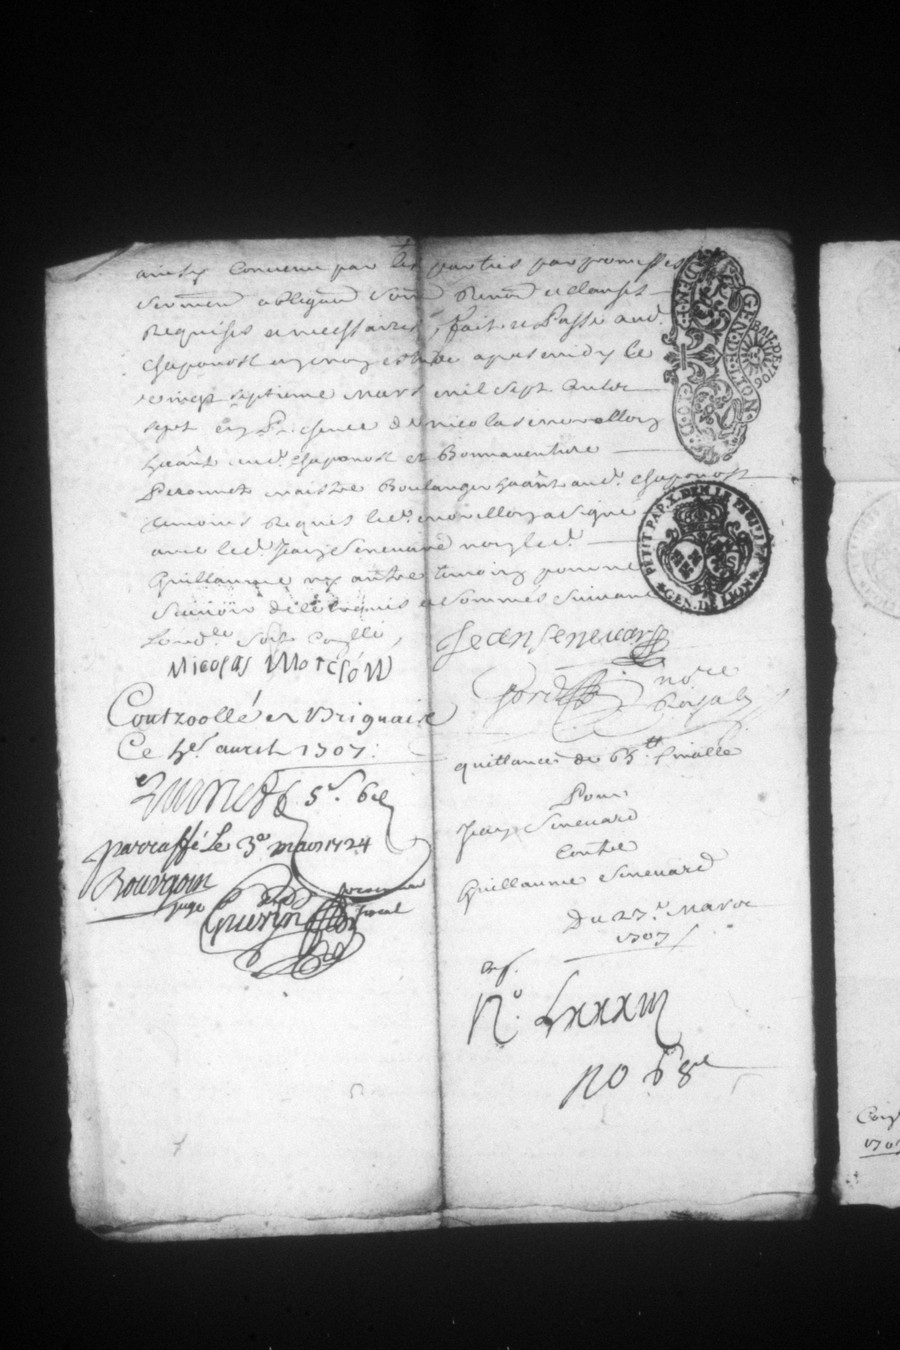 ainsy Convenu par les parties par promesses
serment obligaon soum Renon et clauses
Requises et necessaires, fait et Passé aud.
Chaponost en mon estude apres midy le
vingt septieme Mars mil sept Cents
sept En Presence de nicolas morellon
haant aud. Chaponost et Bonnaventure
Peronnet maistre Boulanger haant aud. Chaponost
temoins Requis led. morellon a signé
avec led. Jean Senevard non led.
Guillaume ny autre temoin pour ne
scavoir de ce enquis et sommés suivant
Lord.ce soit Conllé
Nicolas
Jean Senevard
nore
Royal
Controollé a Brignais
Ce 4er avril 1707.
parraffé Le 3e mars 1724
Bourgoin
juge
Guerin
procureur
fiscal
quittances de 65.tt finalle
Pour
Jean Senevard
Contre
Guillaume Senevard
Du 27.e Mars
1707
N.o Lxxxiii
no 68
GEN.DE LION
BAIL DE 1706
PETIT PAP. X. DEN. LE FEUILLET
GEN. DE LION